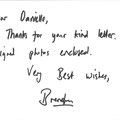 Danielle,
Thanks for your kind letter.
photos enclosed.
Very Best wishes,
Brendan